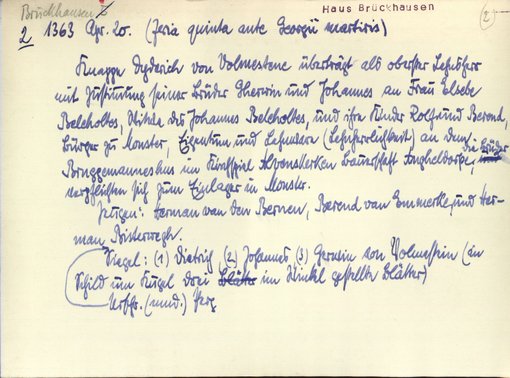 Brückhausen
Haus Brückhausen
2
2 1363 Apr. 20. (feria quinta ante Georgii martiris)
Knappe Dyderich von Volmestene überträgt als oberster Lehnsherr
mit Zustimmung seiner Brüder Gherwin und Johannes an Frau Elsebe
Belholtes, Witwe des Johannes Belholtes, und ihre Kinder Rolf und Bernd,
Bürger zu Monster, Eigentum und Lehnware (Lehnsherrlichkeit) an dem
Bruggemanneshus im Kirchspiel Alvenskerken Bauerschaft Angheldorpe, die Brüder
verpflichten sich zum Einlager in Monster.
Zeugen: Herman van den Bernen, Berend van Emmerke, und Her-
man Bisterwegh.
Siegel: (1) Dietrich, (2) Johannes, (3) Gerwin von Volmestein (im
Schild um Kugel drei Blätter im Winkel gestellte Blätter)
Urschr. (mnd.) Perg